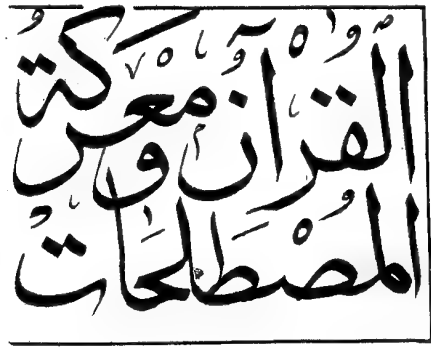 القرآن ومعركة
المصطلحات